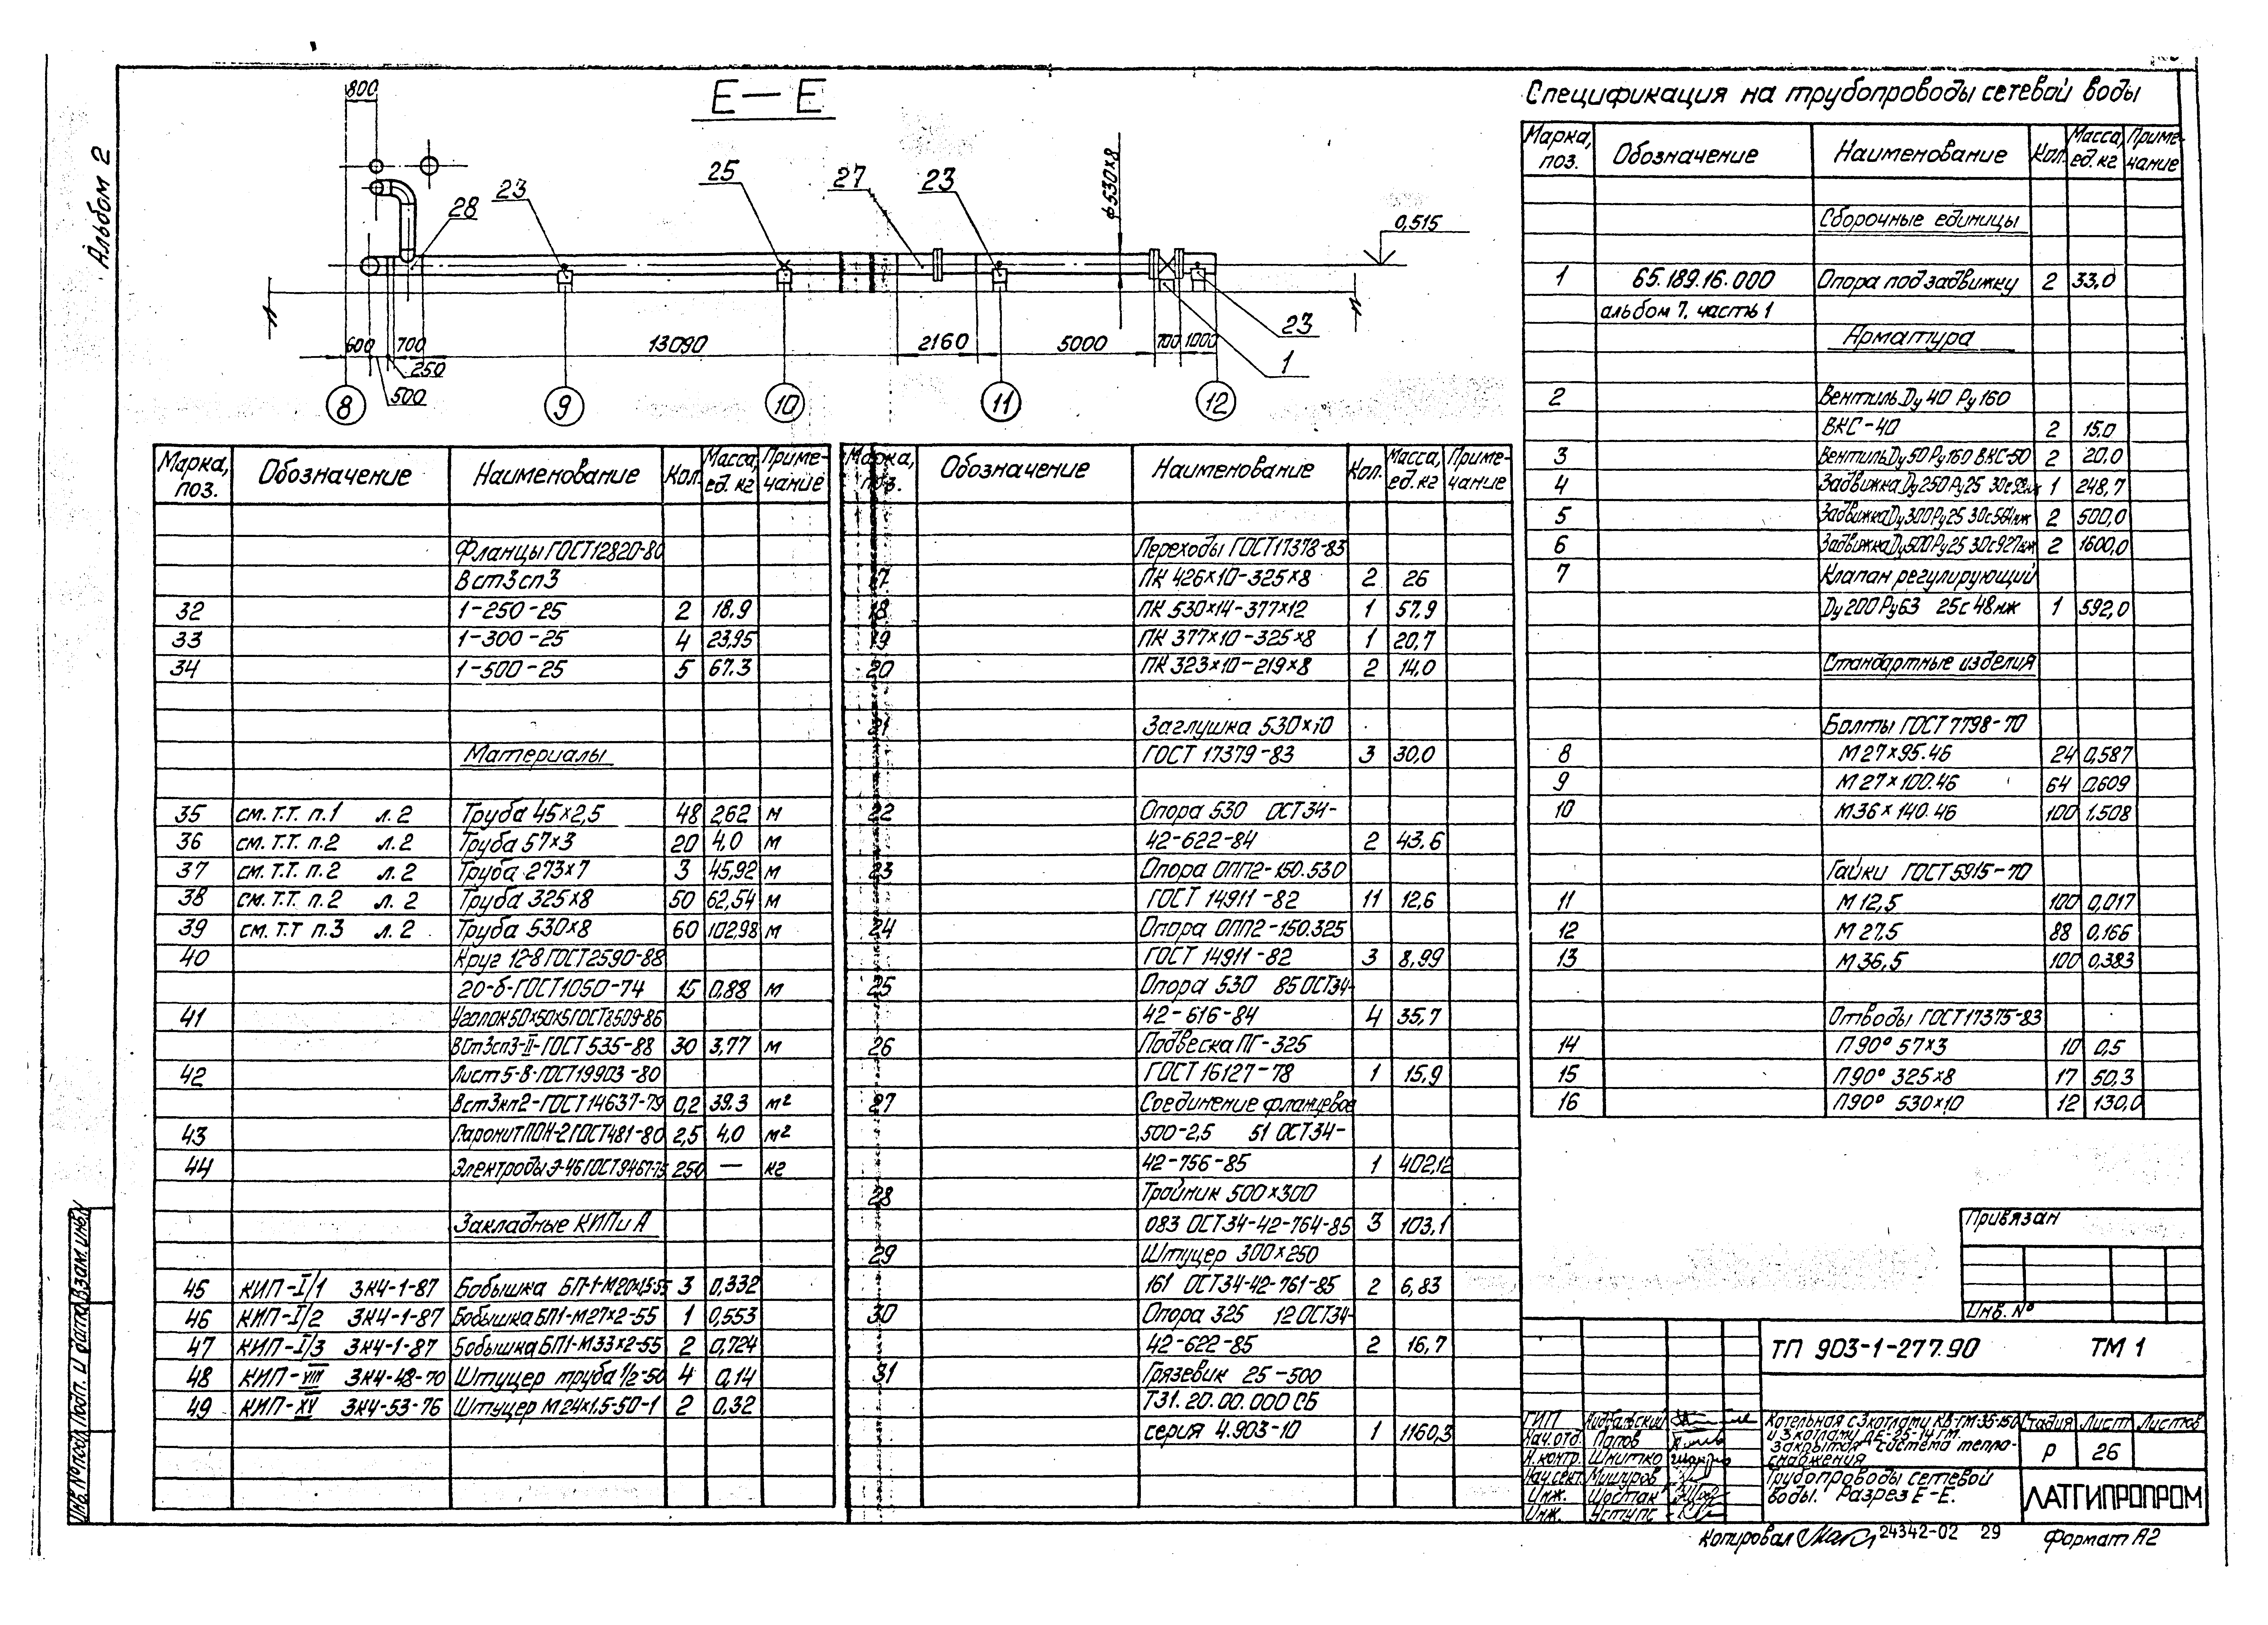 Альбом 2
Е — Е
800
28
23
25
27
23
ф530×8
0,515
600
700
13090
2160
5000
700
1000
250
500
23
1
8
9
10
11
12
Спецификация на трубопроводы сетевой воды
Марка, поз. Обозначение Наименование Кол. Масса, ед. кг Приме-чание
Сборочные единицы
1 65.189.16.000 Опора под задвижку 2 33,0
альбом 7, часть 1
Арматура
2 Вентиль Ду 40 Ру 160
ВКС-40 2 15.0
3 Вентиль Ду 50 Ру 160 ВКС-50 2 20,0
4 Задвижка Ду 250 Ру 25 30с 99нж 1 248,7
5 Задвижка Ду 300 Ру 25 30с564нж 2 500,0
6 Задвижка Ду 500 Ру 25 30с927нж 2 1600,0
7 Клапан регулирующий
Ду 200 Ру 63 25с 48нж 1 592,0
Стандартные изделия
Болты ГОСТ 7798-70
8 М27×95.46 24 0,587
9 М27×100.46 64 0,609
10 М36×140.46 100 1.508
Гайки ГОСТ 5915-70
11 М 12,5 100 0,017
12 М 27,5 88 0,166
13 М 36,5 100 0,383
Отводы ГОСТ 17375-83
14 П90° 57×3 10 0,5
15 П90° 325×8 17 50,3
16 П90° 530×10 12 130,0
Марка, поз. Обозначение Наименование Кол. Масса, ед. кг Приме-чание
Переходы ГОСТ 17378-83
17 ПК 426×10-325×8 2 26
18 ПК 530×14-377×12 1 57.9
19 ПК 377×10-325×8 1 20,7
20 ПК 323×10-219×8 2 14,0
21 Заглушка 530×10
ГОСТ 17379-83 3 30,0
22 Опора 530 ОСТ34-
42-622-84 2 43.6
23 Опора ОПП2-150.530
ГОСТ 14911-82 11 12,6
24 Опора ОПП2-150.325
ГОСТ 14911-82 3 8,99
25 Опора 530 85 ОСТ34-
42-616-84 4 35,7
26 Подвеска ПГ-325
ГОСТ 16127-78 1 15,9
27 Соединение фланцевое
500-2,5 51 ОСТ34-
42-756-85 1 402,12
28 Тройник 500×300
083 ОСТ34-42-764-85 3 103,1
29 Штуцер 300×250
161 ОСТ34-42-761-85 2 6,83
30 Опора 325 12 ОСТ34-
42-622-85 2 16,7
31 Грязевик 25-500
Т31.20.00.000 СБ
серия 4.903-10 1 1160,3
Марка, поз. Обозначение Наименование Кол. Масса, ед. кг Приме-чание
Фланцы ГОСТ12820-80
В ст3сп3
32 1-250-25 2 18.9
33 1-300-25 4 23,95
34 1-500-25 5 67.3
Материалы
35 см. Т.Т. п.1 л. 2 Труба 45×2,5 48 262 м
36 см. Т.Т. п.2 л. 2 Труба 57×3 20 4.0 м
37 см. Т.Т. п.2 л. 2 Труба 273×7 3 45,92 м
38 см. Т.Т. п.2 л. 2 Труба 325×8 50 62,54 м
39 см. Т.Т п.3 л. 2 Труба 530×8 60 102.98 м
40 Круг 12-8 ГОСТ2590-88
20-б-ГОСТ1050-74 15 0,88 м
41 Уголок 50×50×5 ГОСТ8509-86
ВСт3сп3-II-ГОСТ 535-88 30 3,77 м
42 Лист 5-В-ГОСТ19903-80
Вст3кп2-ГОСТ14637-79 0,2 39.3 м²
43 Паронит ПОН-2 ГОСТ481-80 2,5 4,0 м²
44 Электроды Э-46 ГОСТ9467-75 250 — кг
Закладные КИП и А
45 КИП-I/1 ЗК4-1-87 Бобышка БП-1-М20×1,5-55 3 0,332
46 КИП-I/2 ЗК4-1-87 Бобышка БП1-М27×2-55 1 0,553
47 КИП-I/3 ЗК4-1-87 Бобышка БП1-М33×2-55 2 0,724
48 КИП-VIII ЗК4-48-70 Штуцер труба 1/2-50 4 0,14
49 КИП-XV ЗК4-53-76 Штуцер М24×1.5-50-1 2 0.32
Привязан
Инв. №
ТП 903-1-277.90 ТМ 1
ГИП
Нач.отд. Папов
Н.контр. Шнитко
Нач.сект. Мишуров
Инж. Шостак
Инж. Уступс
Котельная с 3 котлами КВ-ГМ-35-150
и 3 котлами ДЕ-25-14 ГМ.
Закрытая система тепло-
снабжения
Стадия Лист Листов
Р 26
Трубопроводы сетевой
воды. Разрез Е-Е.
ЛАТГИПРОПРОМ
Копировал 24342-02 29 Формат А2
Инв. № подл. Подп. и дата Взам. инв. №